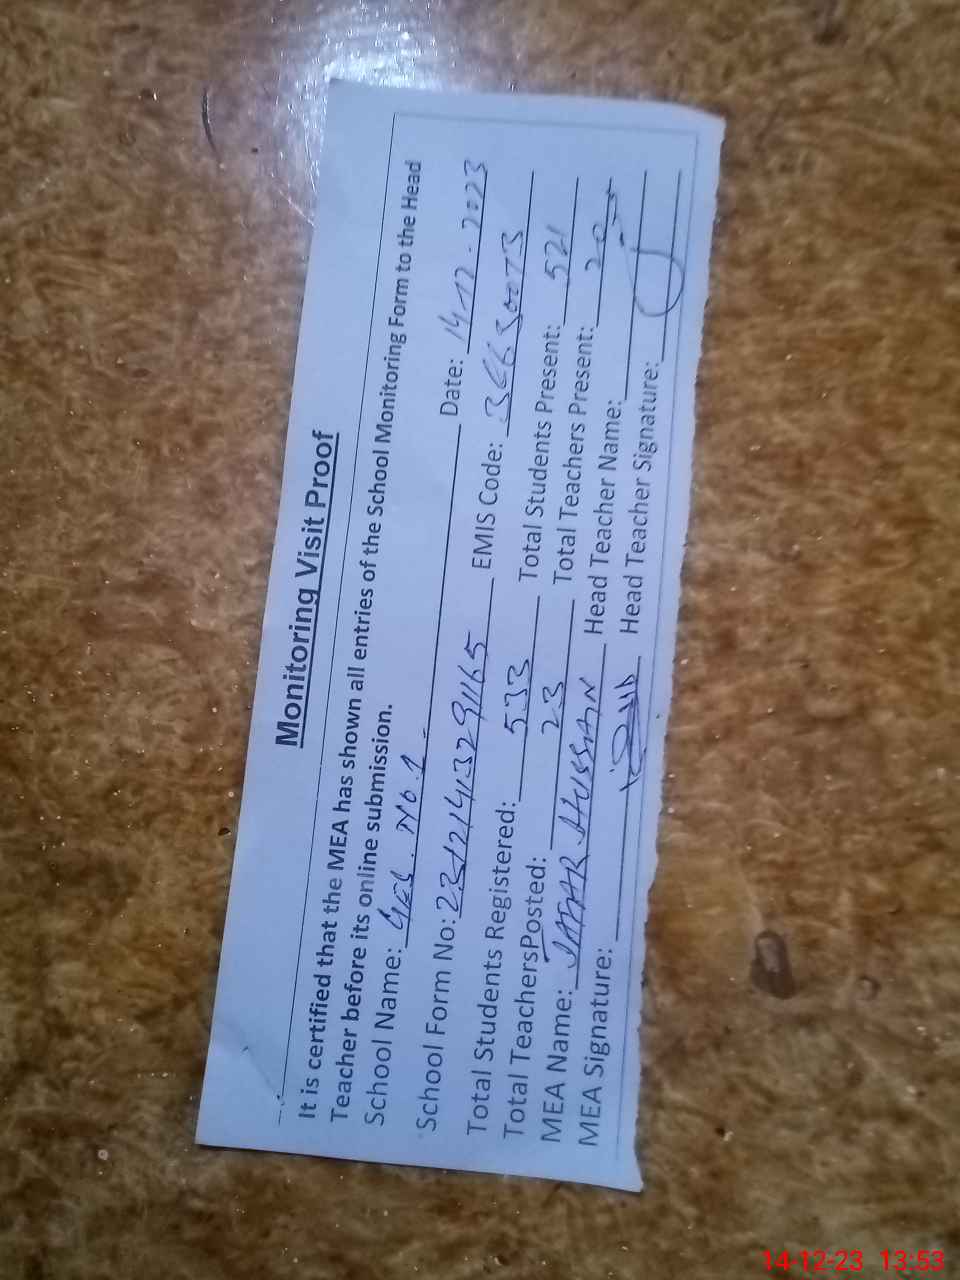 Monitoring Visit Proof
It is certified that the MEA has shown all entries of the School Monitoring Form to the Head
Teacher before its online submission.
School Name: GES. No 1 Date: 14-12-2023
School Form No: EMIS Code:
Total Students Registered: 533 Total Students Present: 521
Total TeachersPosted: 23 Total Teachers Present:
MEA Name: JAFAR HUSSIAN Head Teacher Name:
MEA Signature: Head Teacher Signature:
14-12-23 13:53